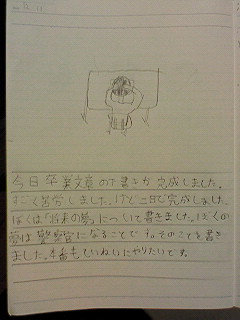 今日卒業文章の下書きが完成しました。
すごく苦労しました。けど二日で完成しました。
ぼくは「将来の夢」について書きました。ぼくの
夢は警察官になることです。そのことを書き
ました。本番もていねいにやりたいです。